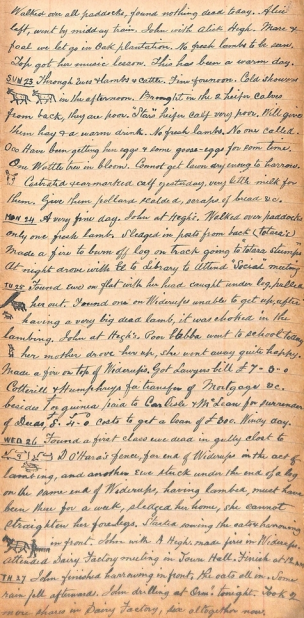 Walked over all paddocks, found nothing dead today. Alice
left, went by midday train. John with Alick Hegh. Mare &
foal we let go in Oak plantation. No fresh lambs to be seen.
got her music lesson. This has been a warm day.
SUN 23 Through Ewes & lambs & cattle. Fine forenoon. Cold showers
in the afternoon. Brought in the 2 heifer calves
from back, they are poor. heifer calf very poor. Will give
them hay & a warm drink. No fresh lambs. No one called.
Have been getting hen eggs & some goose-eggs for some time.
One Wattle tree in bloom. Cannot get lawn dry enough to harrow.
Castrated & earmarked calf yesterday, very little milk for
them. Give them pollard scalded, scraps of bread &c.
MON 24 A very fine day. John at Hegh's. Walked over paddocks
only one fresh lamb. Sledged in posts from back (totara's)
Made a fire to burn off log on track going to totara stumps
At night drove with to Library to attend "Social" meeting
TU 25 Found ewe on flat with her head caught under log, pulled
her out. Found one on Widerups unable to get up, after
having a very big dead lamb, it was choked in the
lambing. John at Hegh's. Poor Ebba went to school today
her mother drove her up, she went away quite happy.
Made a fire on top of Widerup's. Got Lawyers bill £7-0-0
Cotterill & Humphreys for transfer of Mortgage &c.
besides for guinea paid to & McLean for surrender
of Deeds, 8-4-0 costs to get a loan of £300. Windy day.
WED 26 Found a first class ewe dead in gully close to
D. O'Hara's fence, far end of Widerups in the act of
lambing, and another Ewe stuck under the end of a log
on the same end of Widerups, having lambed, must have
been there for a week, sledged her home, she cannot
straighten her forelegs. Started sowing the oats harrowing
in front. John with A. Hegh. made fires in Widerups,
attended Dairy Factory meeting in Town Hall. Finish at
TH 27 John finished harrowing in front, the oats all in. Some
rain fell afterwards. John drilling at tonight. Took 2
more shares in Dairy Factory, six altogether now.